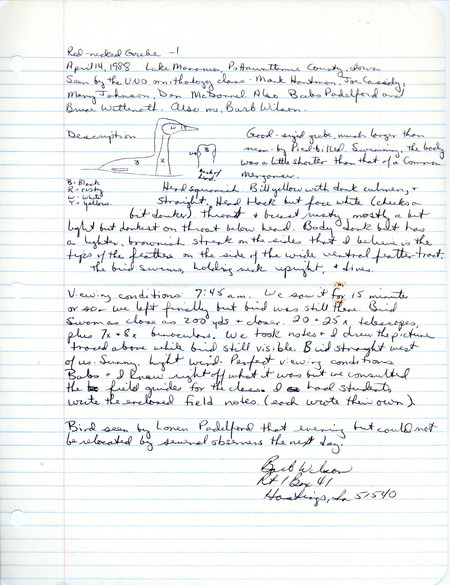 Red-necked Grebe -1
April 14, 1988 Lake Manawa, Pottawattamie County, Iowa
Seen by the UNO ornithology class - Mark Hartman, Joe Cassidy,
Mary Johnson, Don McDonnel. Also Babs Padelford and
Bruce Wetteroth. Also me, Barb Wilson.
Description
Good-sized grebe, much larger than
near-by Pied-billed. Swimming, the body
was a little shorter than that of a Common
Merganser.
B = Black
R = rusty
W = White
Y = yellow
Back of head
Head squarish. Bill yellow with dark culmen, +
straight. Head black but face white (cheeks a
bit darker) throat + breast rusty, mostly a bit
light but darkest on throat below head. Body dark but has
a lighter, brownish streak on the sides that I believe is the
tips of the feathers on the side of the wide ventral feather tract.
The bird swims, holding neck upright, + dives.
Viewing conditions: 7:45 am. We saw it for 15 minutes
or so - we left finally but bird was still there. Bird
swam as close as 200 yds + closer. 20 + 25 x telescopes,
plus 7x + 8x binoculars. We took notes + I drew the picture
traced above while bird still visible. Bird straight west
of us. Sunny, light wind. Perfect viewing conditions
Babs + I knew right off what it was but we consulted
the field guides for the class. I had students
write the enclosed field notes. (each wrote their own).
Bird seen by Loren Padelford that evening but could not
be relocated by several observers the next day.
Barb Wilson
Rt 1 Box 41
Hastings, Ia 51540